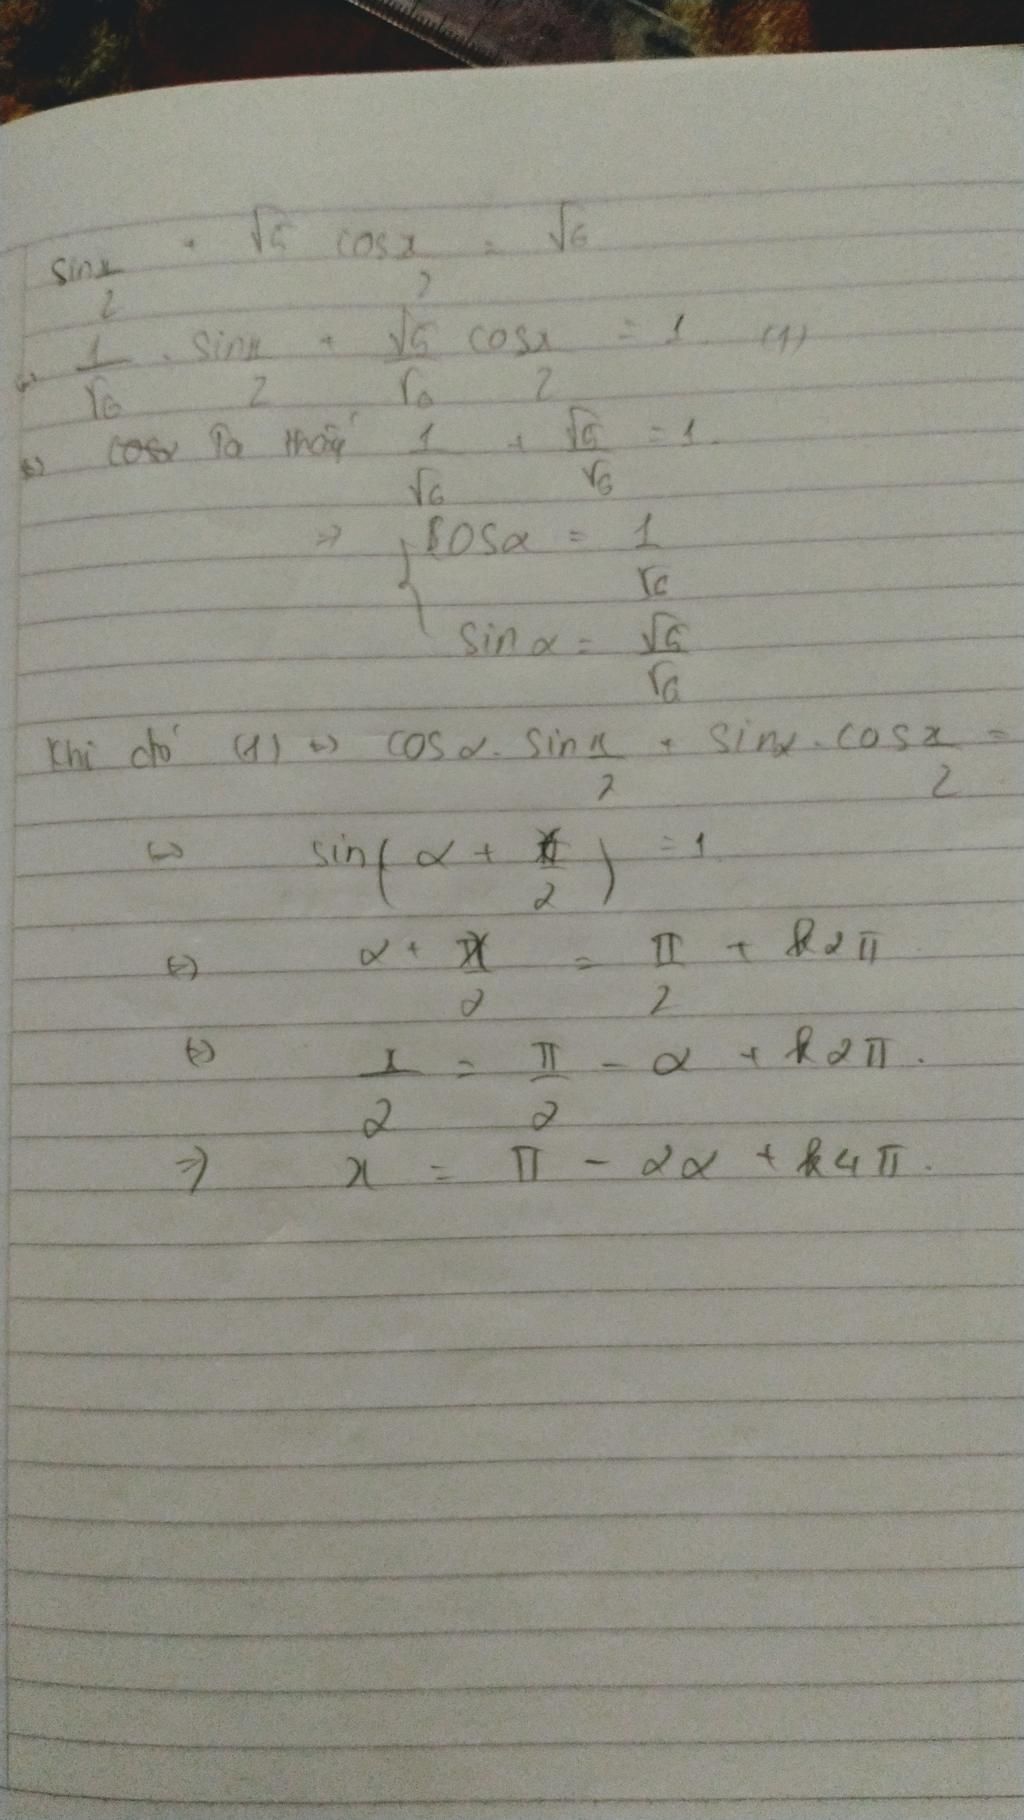 sin x/2 + √5 cos x/2 = √6
⇔ 1/√6 . sin x/2 + √5/√6 cos x/2 = 1 (1)
⇔ cosα Ta thấy 1/√6 + √5/√6 = 1.
⇒ { cosα = 1/√6
sin α = √5/√6
Khi đó (1) ⇔ cosα. sin x/2 + sinα. cos x/2 =
⇔ sin(α + x/2) = 1
⇔ α + x/2 = π/2 + k2π
⇔ x/2 = π/2 - α + k2π.
⇒ x = π - 2α + k4π.